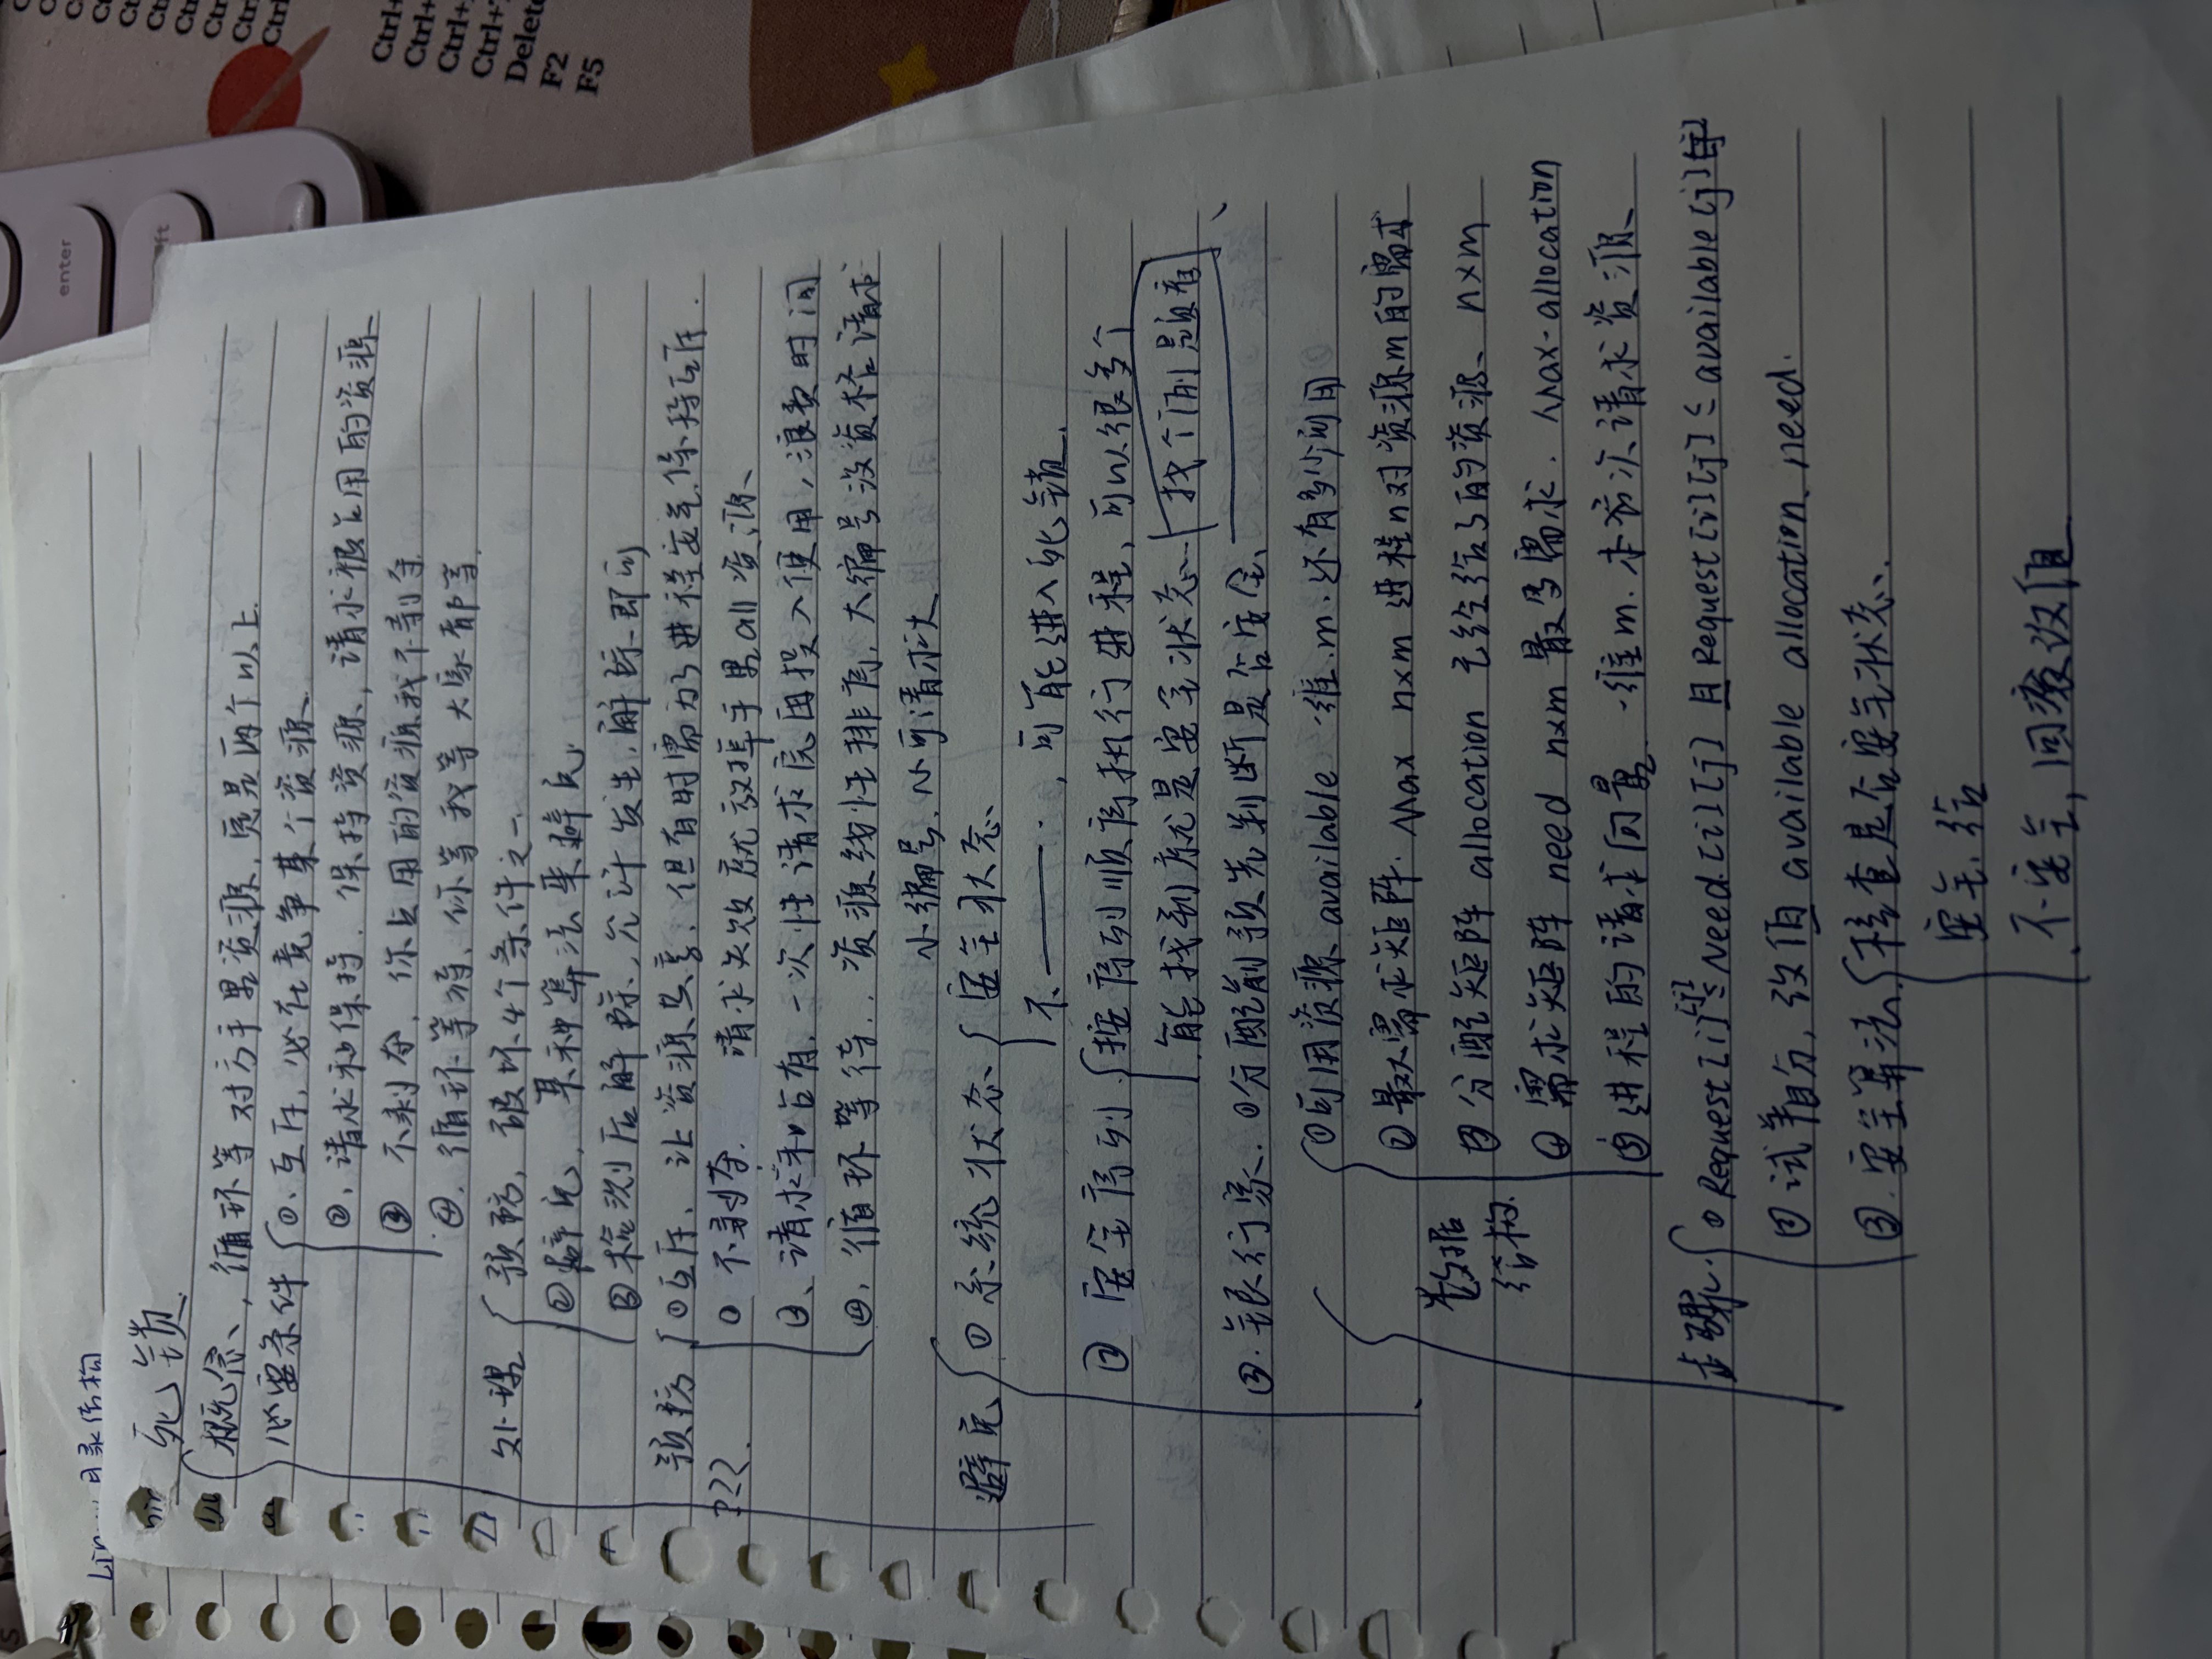 enter
Linux 目录结构
死锁
概念, 循环等对方手里资源, 定是两个以上.
必要条件 ①. 互斥, 必在竞争某个资源
②. 请求和保持. 保持资源, 请求被占用的资源
③ 不剥夺, 你占用的资源我不剥夺
④. 循环等待. 你等我等大家都等.
处理 预防, 破坏4个条件之一
②避免, 某种算法来避免
③检测后解除, 允许发生, 解除即可
预防 ①互斥, 让资源共享, 但有时需为了进程安全保持互斥.
???. ① 不剥夺. 请求失败就放掉手里all资源
③、请求和占有. 一次性请求完再投入使用, 浪费时间
④. 循环等待.. 资源线性排序, 大编号没资格请求
小编号. 小可请求大
避免 ①系统状态 安全状态
不———, 可能进入死锁.
② 安全序列 按序列顺序执行进程, 可以很多个
能找到就是安全状态 找个例题看
③. 银行家. ①分配前预先判断是否安全.
①可用资源 available 一维.m. 还有多少可用
②最大需求矩阵. Max n×m 进程n对资源m的需求
数据
③分配矩阵 allocation 已经给了的资源 n×m
结构.
④需求矩阵 need n×m 最多需求. Max-allocation
⑤进程的请求向量. 一维m. 本次请求资源
步骤. ① Request[i][j] ≤ Need.[i][j] 且 Request[i][j] ≤ available[j]
② 试着分, 改值 available allocation. need.
③. 安全算法. 检查是否安全状态.
安全. 给
不安全, 回滚改值
Ctrl+
Ctrl+
Ctrl+
Ctrl+
Delete
F2
F5